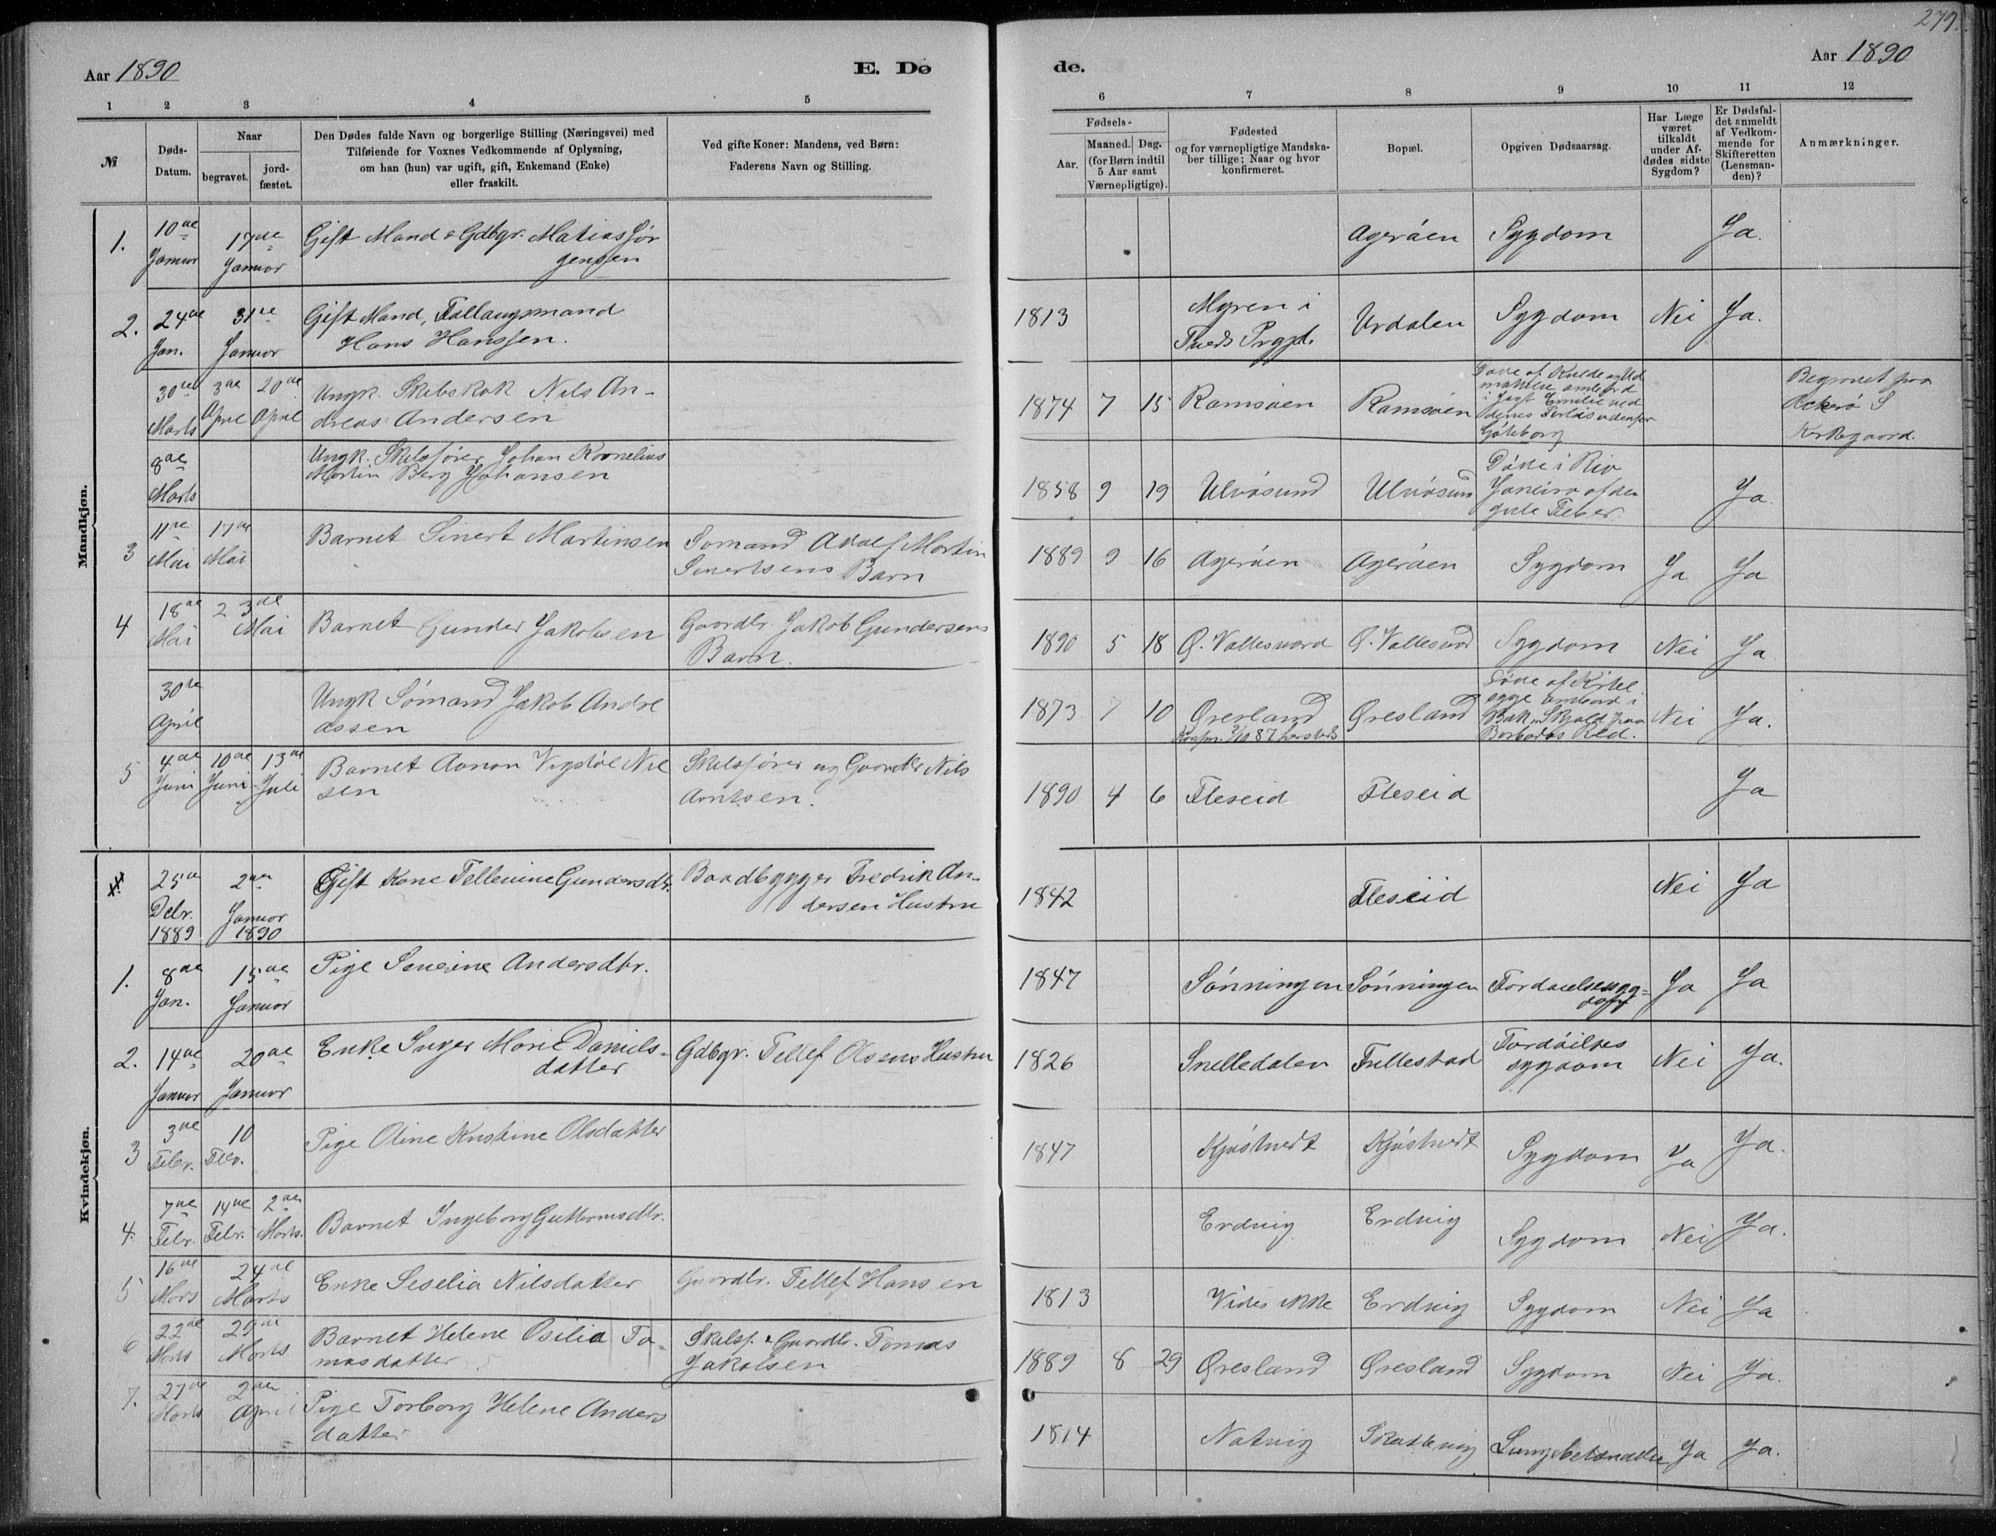 279.
Aar 1890
E. Dø
de.
Aar 1890
1 2 3 4 5
6 7 8 9 10 11 12
№
Døds-
Datum.
Naar
begravet.
jord-
fæstet.
Den Dødes fulde Navn og borgerlige Stilling (Næringsvei) med
Tilføiende for Voxnes Vedkommende af Oplysning,
om han (hun) var ugift, gift, Enkemand (Enke)
eller fraskilt.
Ved gifte Koner: Mandens, ved Børn:
Faderens Navn og Stilling.
Fødsels-
Aar.
Maaned. Dag.
(for Børn indtil
5 Aar samt
Værnepligtige).
Fødested
og for værnepligtige Mandska-
ber tillige: Naar og hvor
konfirmeret.
Bopæl.
Opgiven Dødsaarsag.
Har Læge
været
tilkaldt
under Af-
dødes sidste
Sygdom?
Er Dødsfal-
det anmeldt
af Vedkom-
mende for
Skifteretten
(Lensman-
den)?
Anmærkninger.
Mandkjøn.
1. 10de Januar 17de Januar Gift Mand & Gdbgr. Matias Jør
gensen
Agerøen Sygdom Ja.
2. 24de Jan. 31te Januar Gift Mand, Follaugsmand
Hans Hanssen.
1813 Myren i
Tveds Prgjd. Urdalen Sygdom Nei Ja.
30te Marts 3de April 20de April Ungk. Skibskok Nils An-
dreas Andersen
1874 7 15 Ramsøen Ramsøen
Døde af Kulde og Ud
mattelse ombord
i Jagt Emilie ved
dens Forlis udenfor
Gøteborg
Begravet paa
Ockerö S
Kirkegaard.
8de Marts Ungk. Skibsfører Johan Kornelius
Martin Berg Johansen
1858 9 19 Ulvøsund Ulvøsund
Døde i Rio
Janeiro af den
gule Feber. Ja
3 11te Mai 17de Mai Barnet Sivert Martinsen Sømand Adolf Martin
Sivertsens Barn
1889 9 16 Agerøen Agerøen Sygdom Ja Ja
4 18de Mai 23de Mai Barnet Gunder Jakobsen Gaardbr. Jakob Gundersens
Barn.
1890 5 18 Ø. Vallesværd Ø. Vallesværd Sygdom Nei Ja
30te April Ungk Sømand Jakob Andre
assen
1873 7 10 Øresland
Øresland
Døde af
ombord i
Bark Skjold paa
Barbados Red. Nei Ja.
5 4de Juni 10de Juni 13de Juli Barnet Aanon Vigstøl Niel
sen
Skibsfører og Gaardbr Nils
Arntsen.
1890 4 6 Fleseid Fleseid Ja
Kvindekjøn.
25de Debr. 1889 2den Januar 1890 Gift Kone Tellevine Gundersdtr. Baadbygger Fredrik An-
dersen Hustru
1842 Fleseid Nei Ja
1. 8de Jan. 15de Januar Pige Severine Andersdtr.
1847 Sønningen Sønningen Ja Ja
2. 14de Januar 20de Januar Enke Inger Marie Daniels-
datter
Gdbgr. Tellef Olsens Hustru
1826 Snelledalen Trillestad Fordøielses
sygdom Nei Ja.
3 3de Febr. 10 Febr. Pige Oline Kristine Olsdatter
1847 Kjøstvedt Kjøstvedt Sygdom Ja Ja.
4. 7de Febr. 14de Febr. 2den Marts. Barnet Ingeborg Guttormsdtr.
Erdvig Erdvig Sygdom Nei Ja.
5 16de Mars 24de Marts Enke Seselia Nilsdatter Gaardbr. Tellef Hansen
1813 Vides ikke Erdvig Sygdom Nei Ja
6 22de Marts 29de Marts Barnet Helene Osilia To-
masdatter
Skibsf. & Gaardbr. Tomas
Jakobsen
1889 8 29 Øresland Øresland Sygdom Nei Ja.
7. 27de Marts 2den April Pige Torborg Helene Anders
datter
1814 Natvig Skottevig Lungebetændelse Ja Ja.